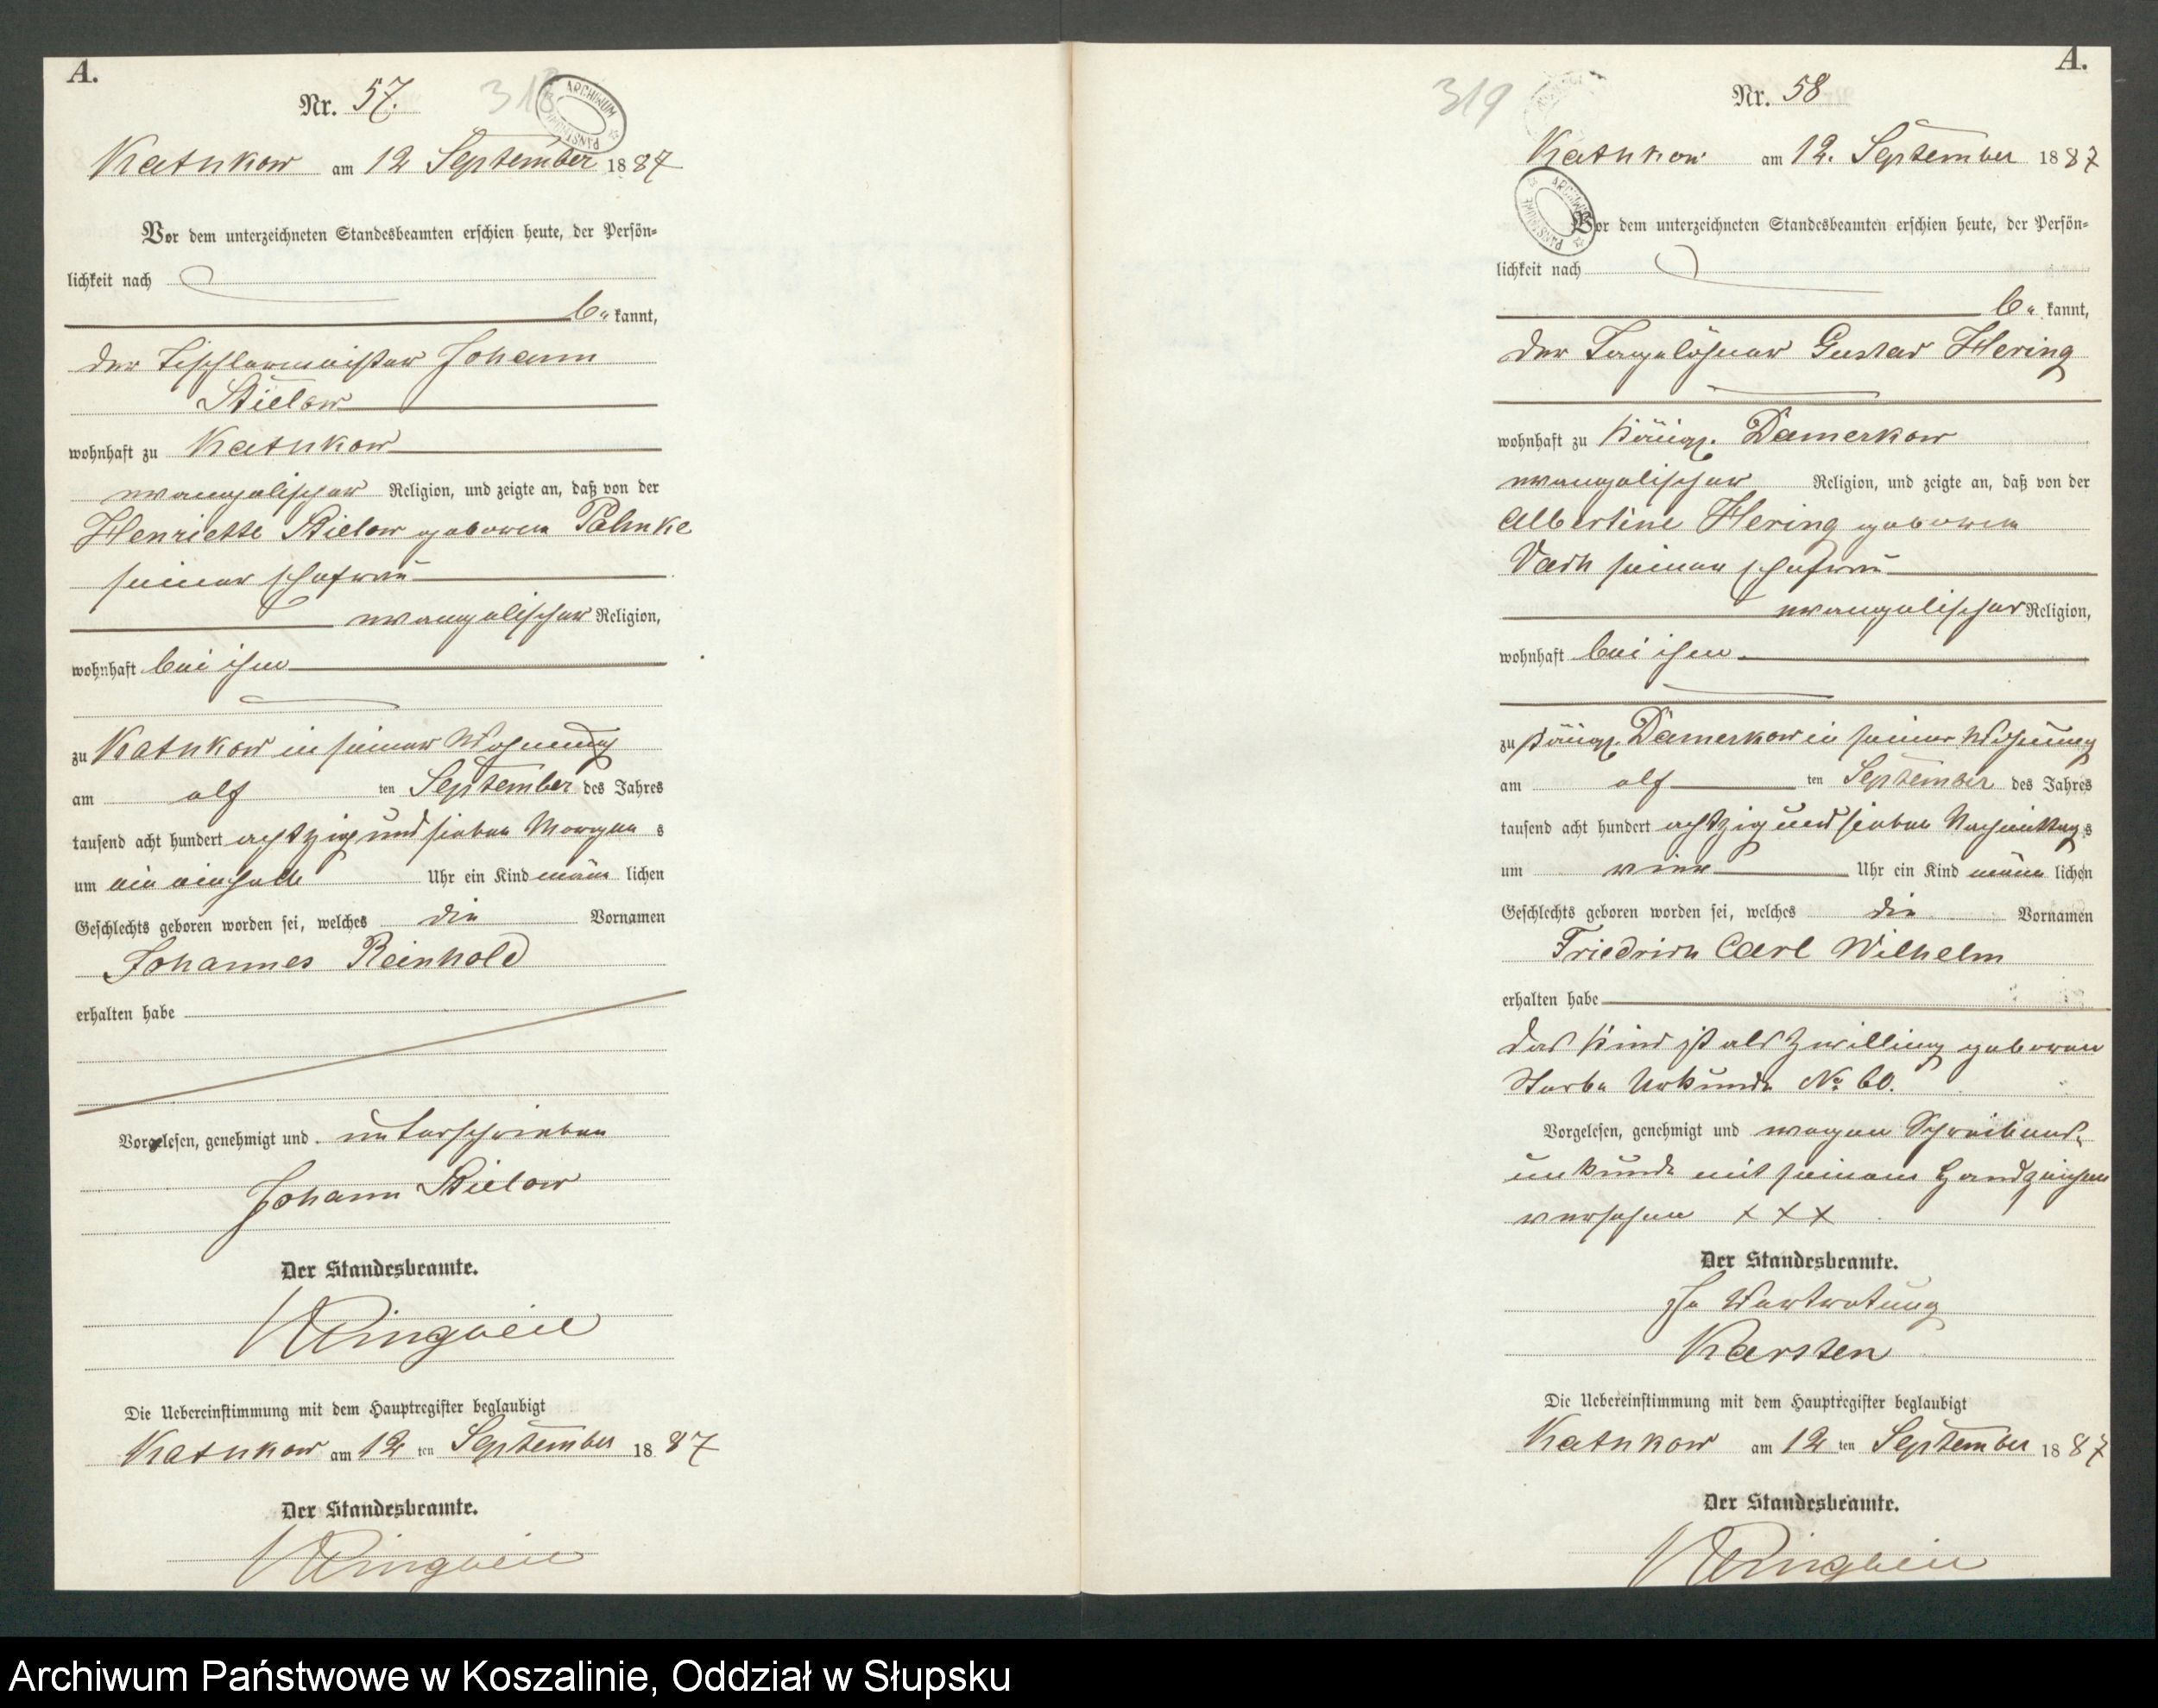 A.
Nr. 57.
318
ARCHIWUM PAŃSTWOWE
Kathkow am 12 September 1887
Vor dem unterzeichneten Standesbeamten erschien heute, der Persön-
lichkeit nach
be kannt,
der Tischlermeister Johann
Stielow
wohnhaft zu Kathkow
evangelischer Religion, und zeigte an, daß von der
Henriette Stielow geborene Pahnke
seiner Ehefrau
evangelischer Religion,
wohnhaft bei ihm
zu Kathkow in seiner Wohnung
am elf ten September des Jahres
tausend acht hundert achtzig und sieben Morgen s
um ein einhalb Uhr ein Kind männ lichen
Geschlechts geboren worden sei, welches die Vornamen
Johannes Reinhold
erhalten habe
Vorgelesen, genehmigt und unterschrieben
Johann Stielow
Der Standesbeamte.
Die Uebereinstimmung mit dem Hauptregister beglaubigt
Kathkow am 12 ten September 1887
Der Standesbeamte.
A.
Nr. 58
319
ARCHIWUM PAŃSTWOWE
Kathkow am 12. September 1887
Vor dem unterzeichneten Standesbeamten erschien heute, der Persön-
lichkeit nach
be kannt,
der Tagelöhner Gustav Hering
wohnhaft zu Königl. Damerkow
evangelischer Religion, und zeigte an, daß von der
Albertine Hering geborene
seiner Ehefrau
evangelischer Religion,
wohnhaft bei ihm
zu Königl. Damerkow in seiner Wohnung
am elf ten September des Jahres
tausend acht hundert achtzig und sieben Nachmittag s
um vier Uhr ein Kind männ lichen
Geschlechts geboren worden sei, welches die Vornamen
Friedrich Carl Wilhelm
erhalten habe
Das Kind ist als Zwilling geboren
Sterbe Urkunde No 60.
Vorgelesen, genehmigt und wegen Schreibens-
unkunde mit seinem Handzeichen
versehen XXX
Der Standesbeamte.
In Vertretung
Karsten
Die Uebereinstimmung mit dem Hauptregister beglaubigt
Kathkow am 12 ten September 1887
Der Standesbeamte.
Archiwum Państwowe w Koszalinie, Oddział w Słupsku